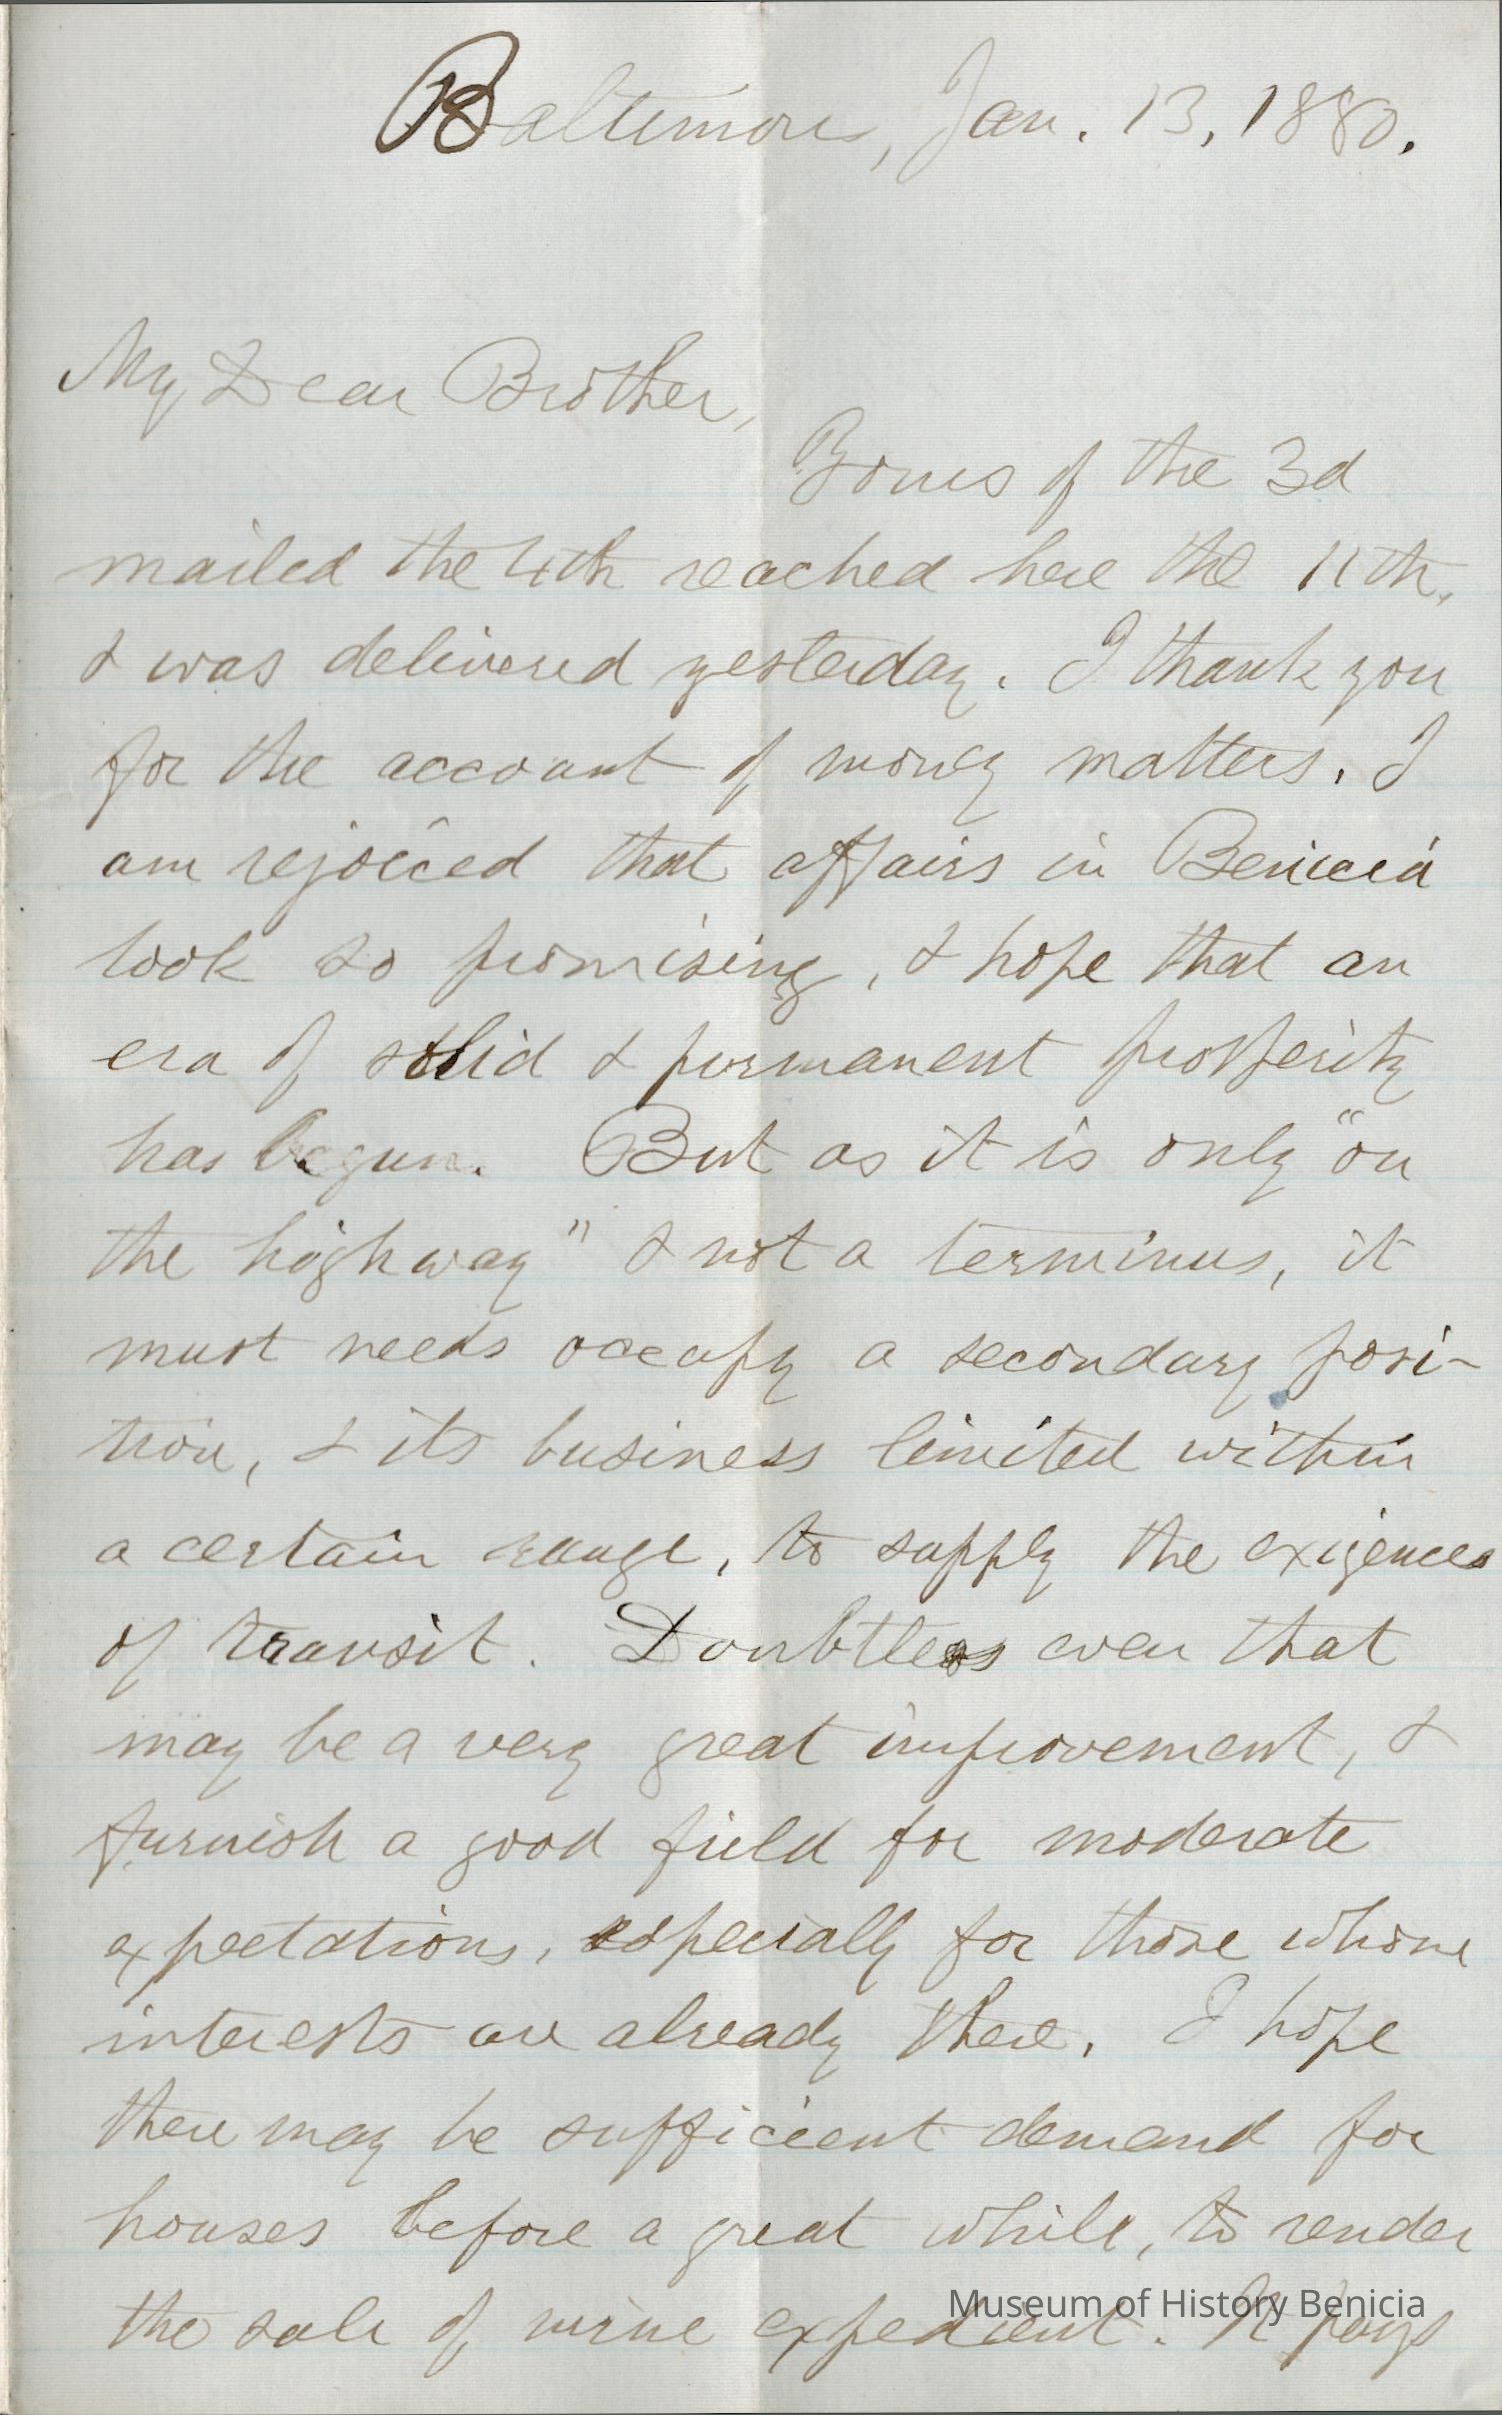 Baltimore, Jan. 13, 1880.
My Dear Brother,
Yours of the 3d
mailed the 4th reached here the 11th,
& was delivered yesterday. I thank you
for the account of money matters. I
am rejoiced that affairs in Benicia
look so promising, & hope that an
era of solid & permanent prosperity
has begun. But as it is only "on
the highway" & not a terminus, it
must needs occupy a secondary posi-
tion, & its business limited within
a certain range, to supply the exigences
of transit. Doubtless even that
may be a very great improvement, &
furnish a good field for moderate
expectations, especially for those whose
interests are already there. I hope
there may be sufficient demand for
houses before a great while, to render
the sale of mine expedient. It pays
Museum of History Benicia